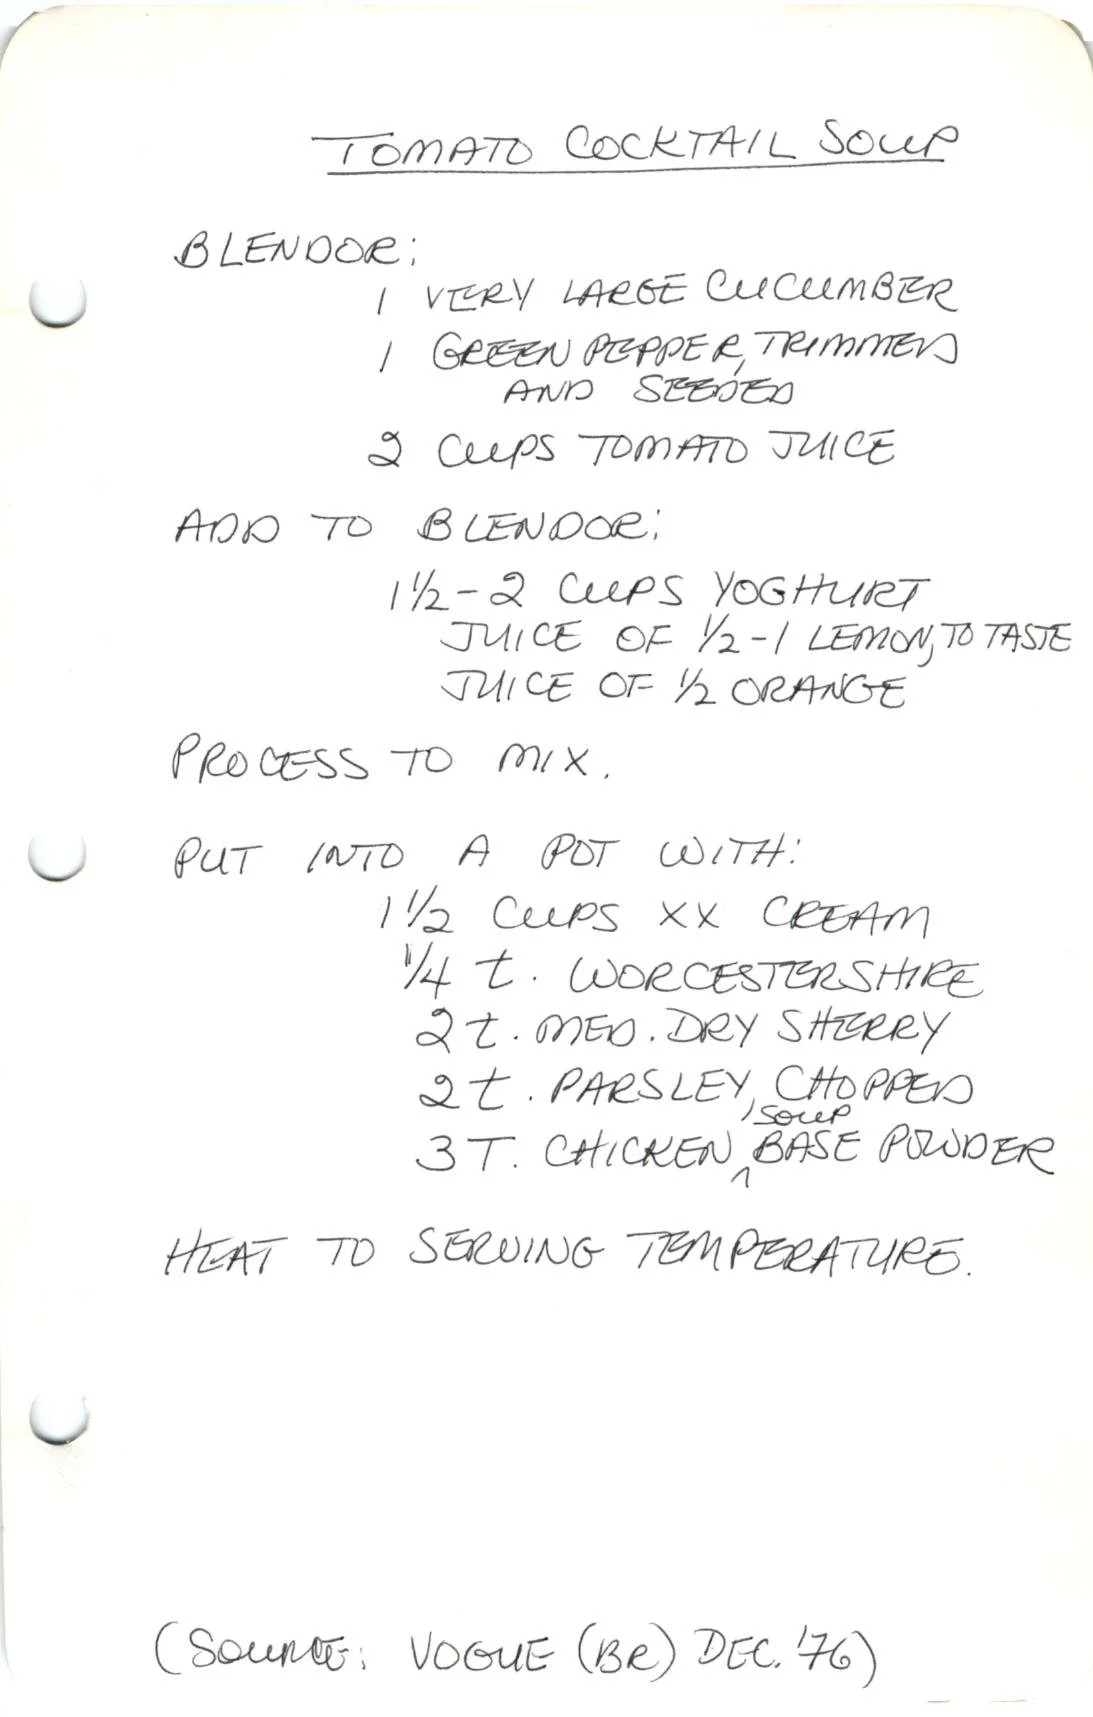 TOMATO COCKTAIL SOUP
BLENDOR:
1 VERY LARGE CUCUMBER
1 GREEN PEPPER, TRIMMED
AND SEEDED
2 CUPS TOMATO JUICE
ADD TO BLENDOR:
1 1/2 - 2 CUPS YOGHURT
JUICE OF 1/2 - 1 LEMON, TO TASTE
JUICE OF 1/2 ORANGE
PROCESS TO MIX.
PUT INTO A POT WITH:
1 1/2 CUPS XX CREAM
1/4 t. WORCESTERSHIRE
2 t. MED. DRY SHERRY
2 t. PARSLEY, CHOPPED
3 T. CHICKEN SOUP BASE POWDER
HEAT TO SERVING TEMPERATURE.
(SOURCE: VOGUE (BR) DEC. '76)